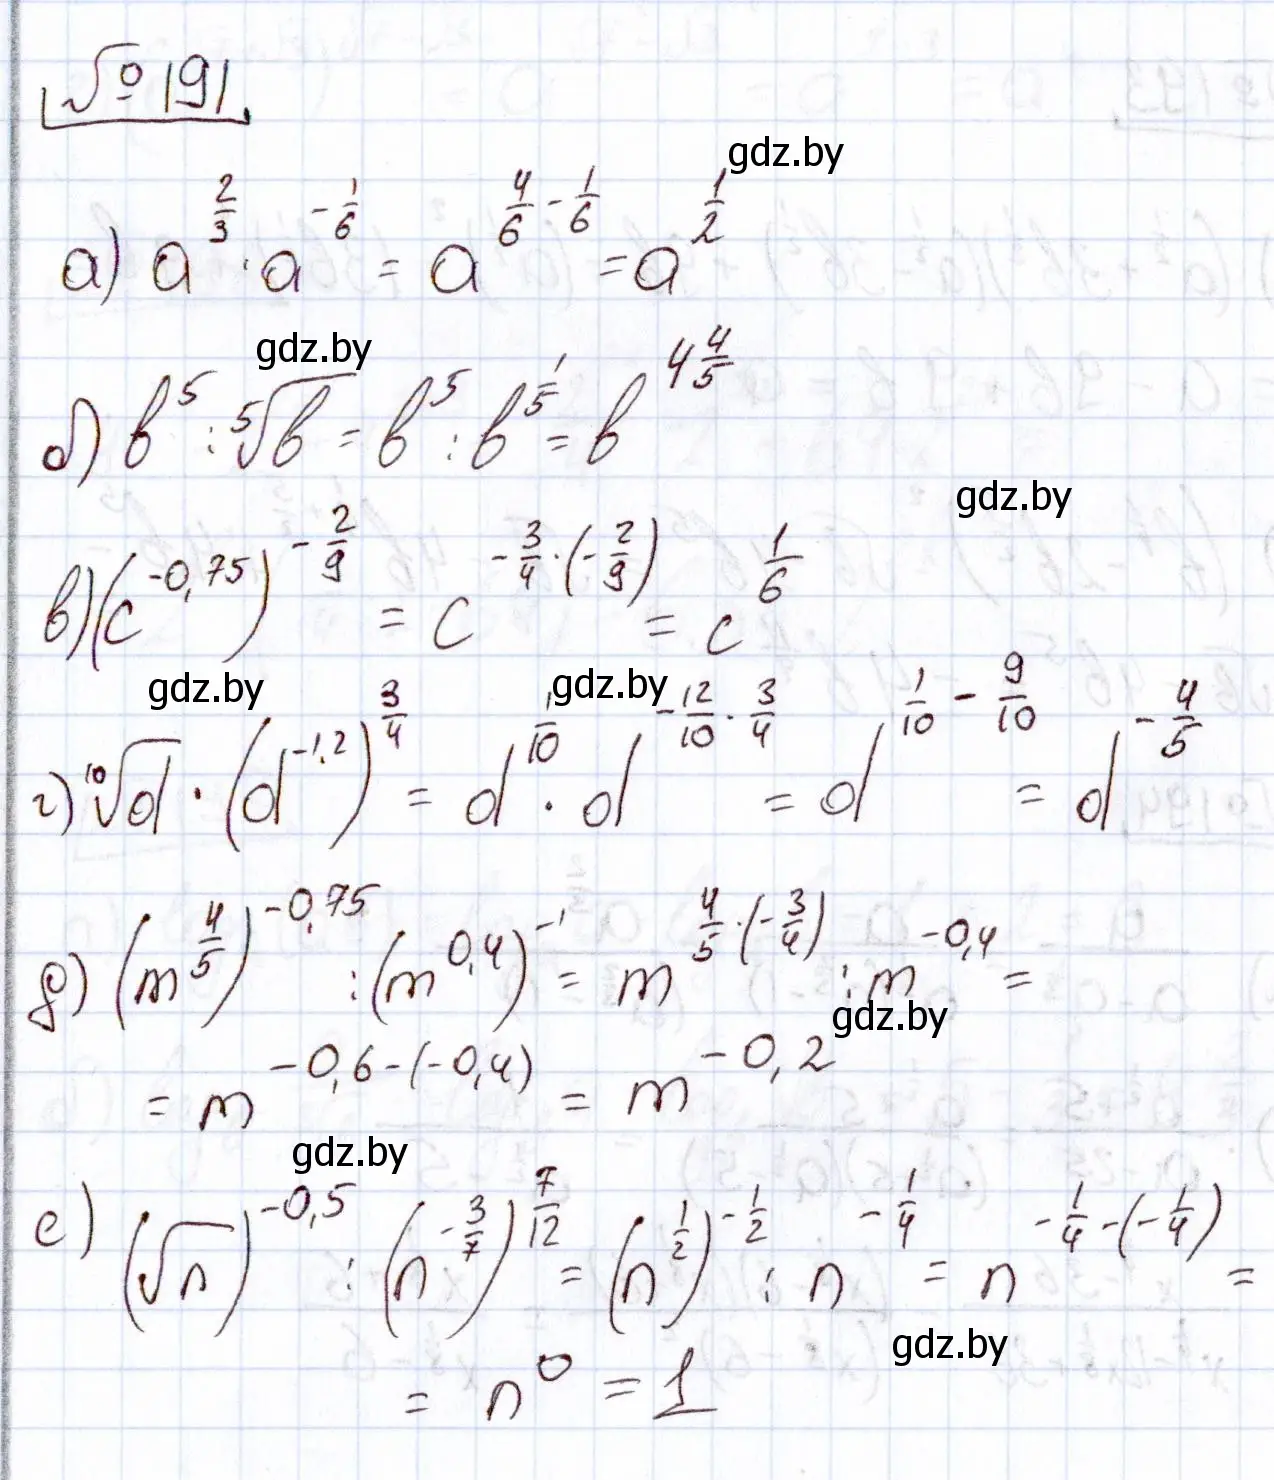 № 191
gdz.by
а) a^{2/3} · a^{-1/6} = a^{4/6 - 1/6} = a^{1/2}
gdz.by
б) b^5 : ⁵√b = b^5 : b^{1/5} = b^{4 4/5}
gdz.by
в) (c^{-0,75})^{-2/9} = c^{-3/4 · (-2/9)} = c^{1/6}
gdz.by gdz.by
г) ¹⁰√d · (d^{-1,2})^{3/4} = d^{1/10} · d^{-12/10 · 3/4} = d^{1/10 - 9/10} = d^{-4/5}
д) (m^{4/5})^{-0,75} : (m^{0,4})^{-1} = m^{4/5 · (-3/4)} : m^{-0,4} =
gdz.by
= m^{-0,6-(-0,4)} = m^{-0,2}
gdz.by
е) (√n)^{-0,5} : (n^{-3/7})^{7/12} = (n^{1/2})^{-1/2} : n^{-1/4} = n^{-1/4-(-1/4)} =
gdz.by
= n^0 = 1